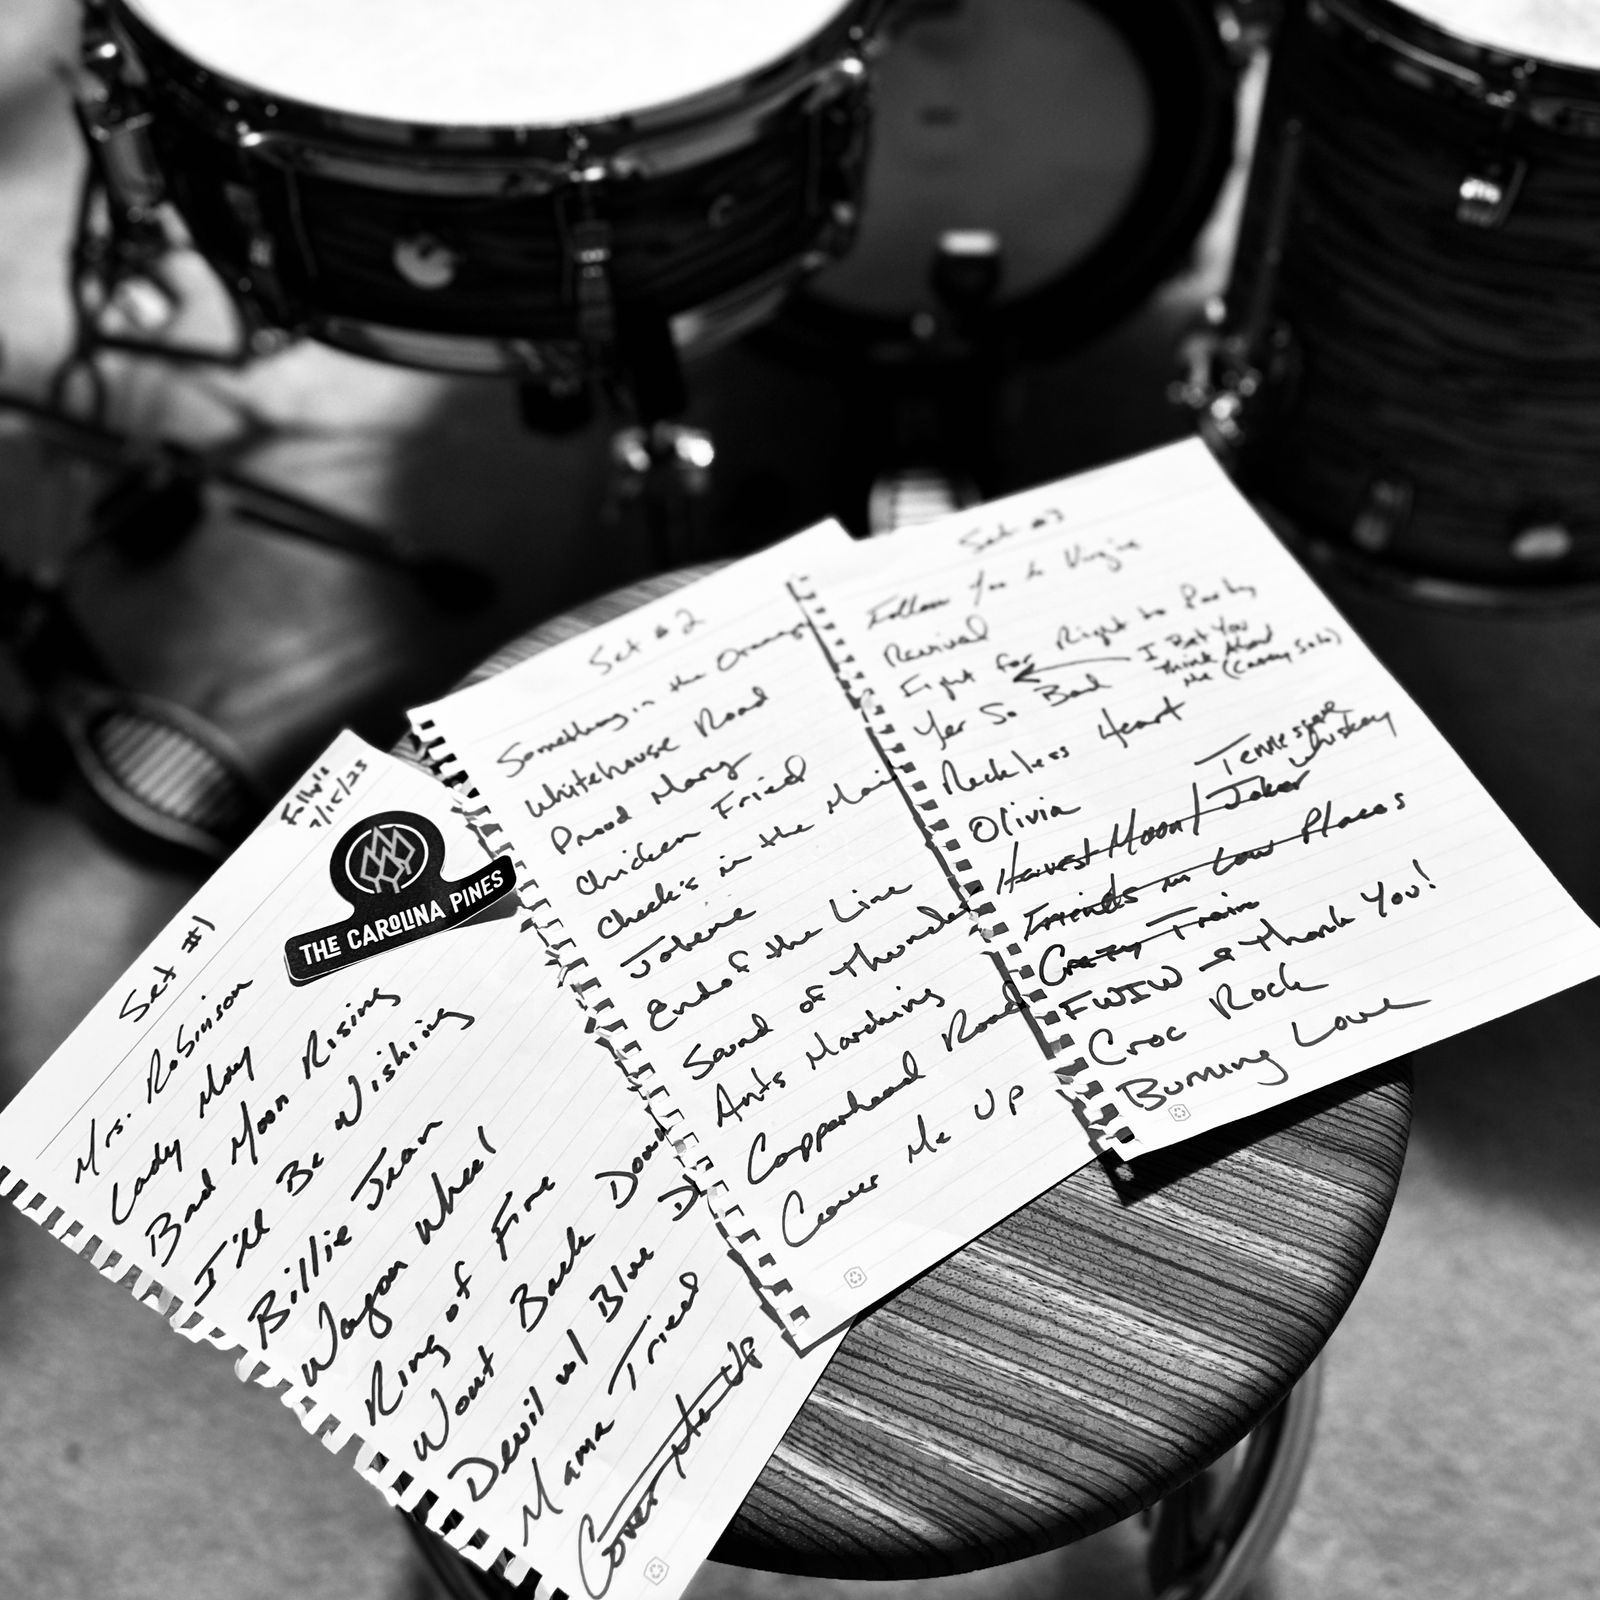 7/15/23
THE CAROLINA PINES
Set #1
Mrs. Robinson
Lady May
Bad Moon Rising
I'll Be Wishing
Billie Jean
Wagon Wheel
Ring of Fire
Wont Back Down
Devil w/ Blue
Mama Tried
Cover Me Up
Set #2
Something in the Orange
Whitehouse Road
Proud Mary
Chicken Fried
Check's in the Mail
Jolene
End of the Line
Sound of Thunder
Ants Marching
Copperhead Road
Cover Me Up
Set #3
Follow You to Virgie
Revival
Fight for Right to Party
I Bet You
Think About
Me (Casey Solo)
Yer So Bad
Reckless Heart
Olivia
Tennessee
Whiskey
Harvest Moon / Joker
Friends in Low Places
Crazy Train
FWIW → Thank You!
Croc Rock
Burning Love